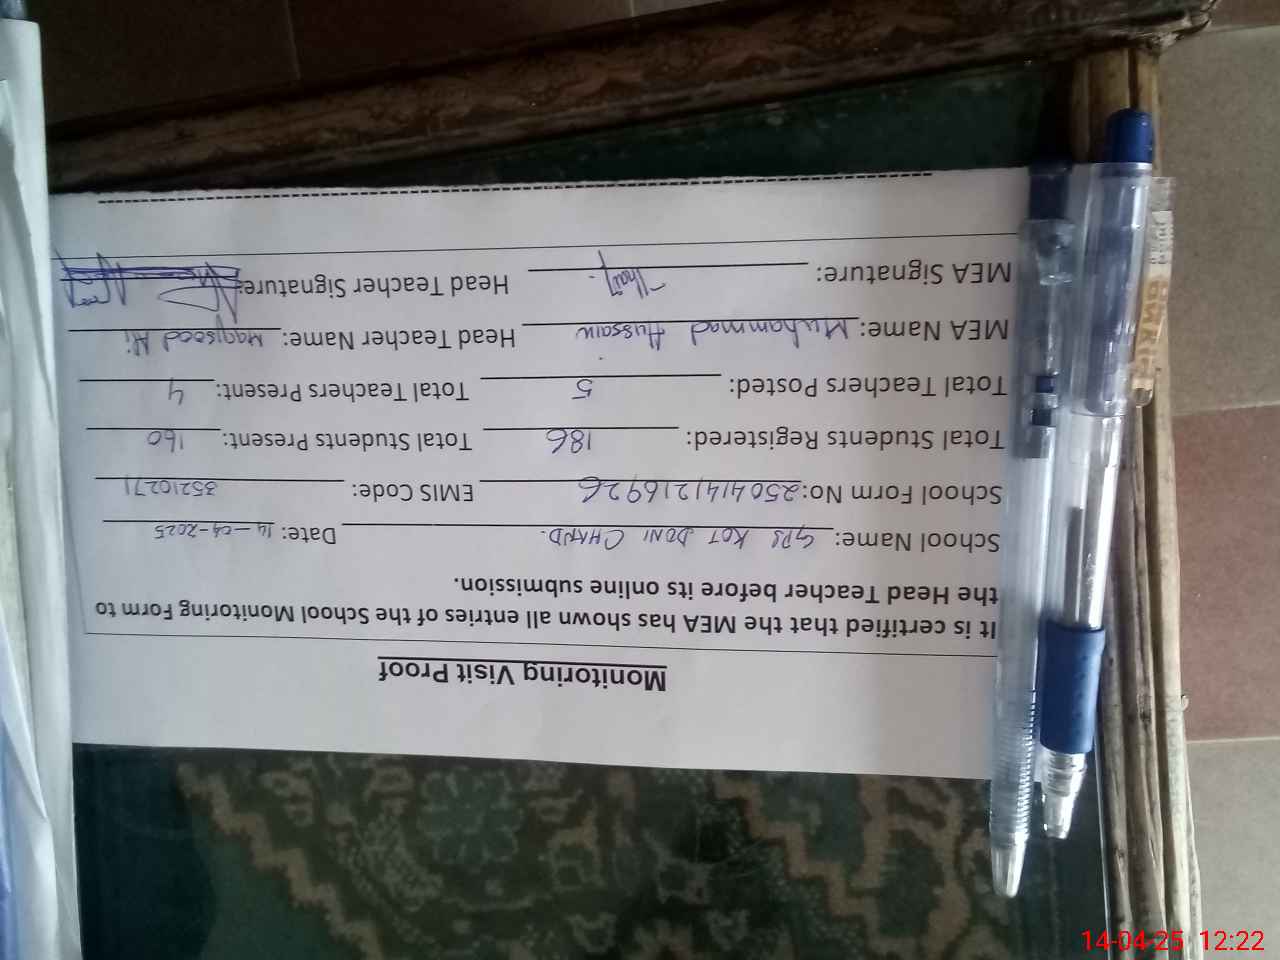 Monitoring Visit Proof
It is certified that the MEA has shown all entries of the School Monitoring Form to
the Head Teacher before its online submission.
School Name: GPS KOT DONI CHAND. Date: 14-04-2025
School Form No: 2504141216926 EMIS Code: 35210271
Total Students Registered: 186 Total Students Present: 160
Total Teachers Posted: 5 Total Teachers Present: 4
MEA Name: Muhammad Hussain Head Teacher Name: Maqsood Ali
MEA Signature: Head Teacher Signature:
14-04-25 12:22